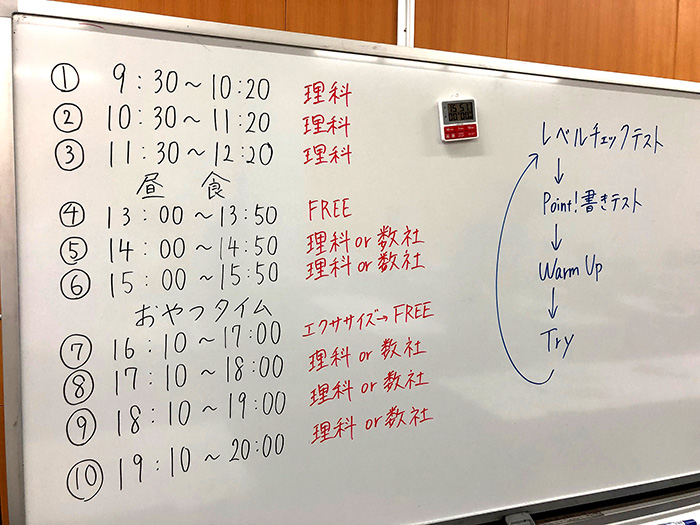 ① 9:30～10:20 理科
② 10:30～11:20 理科
③ 11:30～12:20 理科
昼 食
④ 13:00～13:50 FREE
⑤ 14:00～14:50 理科or数社
⑥ 15:00～15:50 理科or数社
おやつタイム
⑦ 16:10～17:00 エクササイズ→FREE
⑧ 17:10～18:00 理科or数社
⑨ 18:10～19:00 理科or数社
⑩ 19:10～20:00 理科or数社
レベルチェックテスト
↓
Point!書きテスト
↓
Warm Up
↓
Try